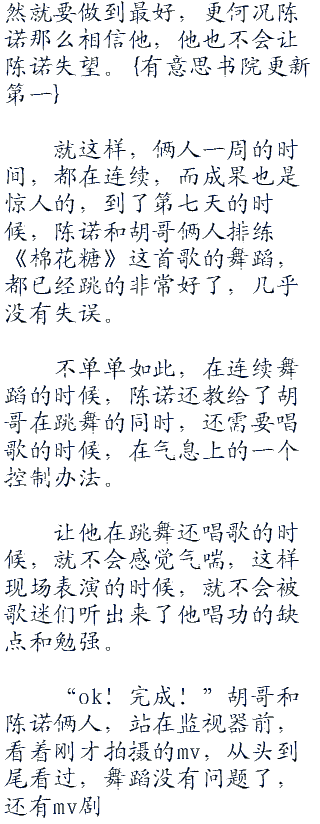 然就要做到最好，更何况陈
诺那么相信他，他也不会让
陈诺失望。{有意思书院更新
第一}
就这样，俩人一周的时
间，都在连续，而成果也是
惊人的，到了第七天的时
候，陈诺和胡哥俩人排练
《棉花糖》这首歌的舞蹈，
都已经跳的非常好了，几乎
没有失误。
不单单如此，在连续舞
蹈的时候，陈诺还教给了胡
哥在跳舞的同时，还需要唱
歌的时候，在气息上的一个
控制办法。
让他在跳舞还唱歌的时
候，就不会感觉气喘，这样
现场表演的时候，就不会被
歌迷们听出来了他唱功的缺
点和勉强。
“ok！完成！”胡哥和
陈诺俩人，站在监视器前，
看着刚才拍摄的mv，从头到
尾看过，舞蹈没有问题了，
还有mv剧